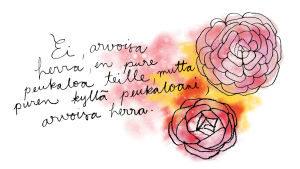 Ei, arvoisa
herra, en pure
peukaloa teille, mutta
puren kyllä peukaloani,
arvoisa herra.